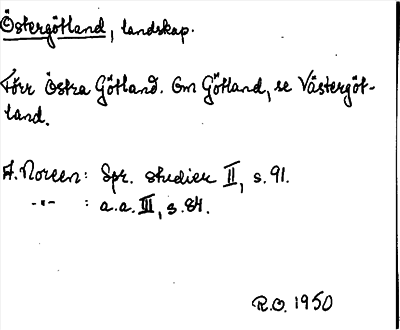 Östergötland, landskap.
Förr Östra Götland. Om Götland, se Västergöt-
land.
A. Noreen: Spr. studier II, s. 91.
-"- : a.a. III, s. 84.
R.O. 1950